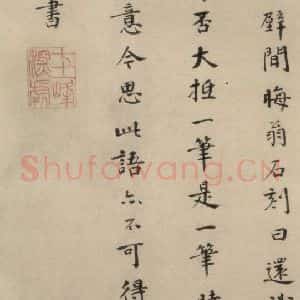 壁間晦翁石刻曰還
否大抵一筆是一筆
意今思此語亦不可得
書
Shufawang.CN